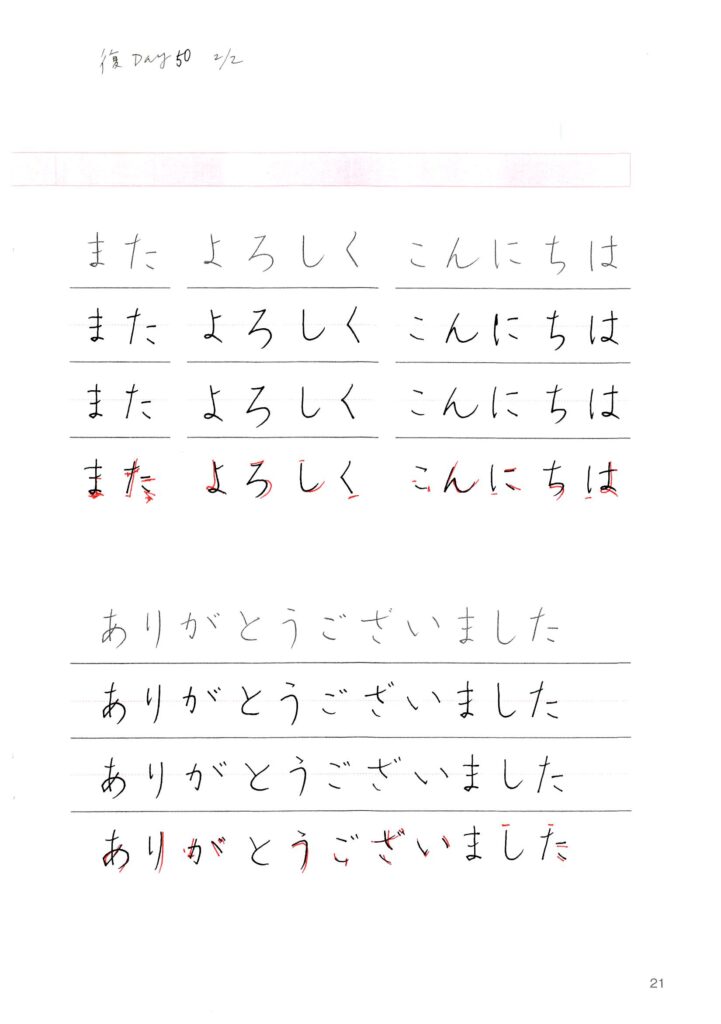 復 Day 50 2/2
また よろしく こんにちは
また よろしく こんにちは
また よろしく こんにちは
また よろしく こんにちは
ありがとうございました
ありがとうございました
ありがとうございました
ありがとうございました
21